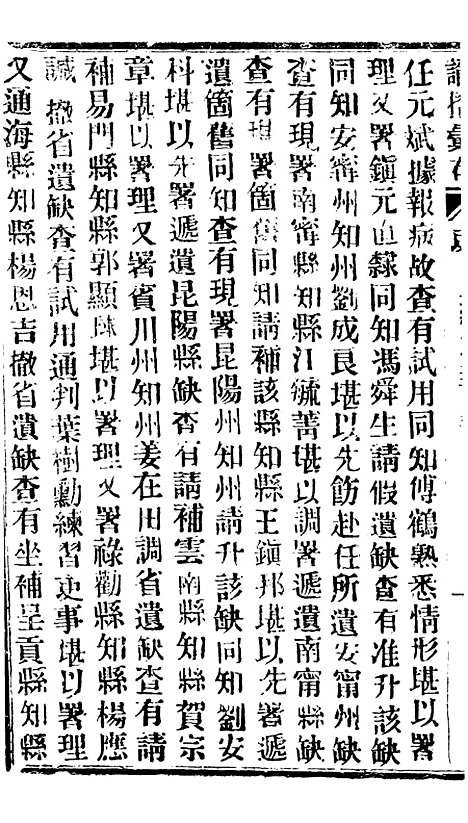 諭摺彙存
任元斌據報病故查有試用同知傅鶴熟悉情形堪以署
理又署鎮元直隸同知馮舜生請假遺缺查有准升該缺
同知安甯州知州劉成良堪以先飭赴任所遺安甯州缺
查有現署南甯縣知縣江毓菁堪以調署遞遺南甯縣缺
查有現署箇舊同知請補該縣知縣王鎮邦堪以先署遞
遺箇舊同知查有現署昆陽州知州請升該缺同知劉安
科堪以先署遞遺昆陽縣缺查有請補雲南縣知縣賀宗
章堪以署理又署賓川州知州姜在田調省遺缺查有請
補易門縣知縣郭顯 堪以署理又署祿勸縣知縣楊應
諴撤省遺缺查有試用通判葉樹勳練習吏事堪以署理
又通海縣知縣楊恩吉撤省遺缺查有坐補呈貢縣知縣